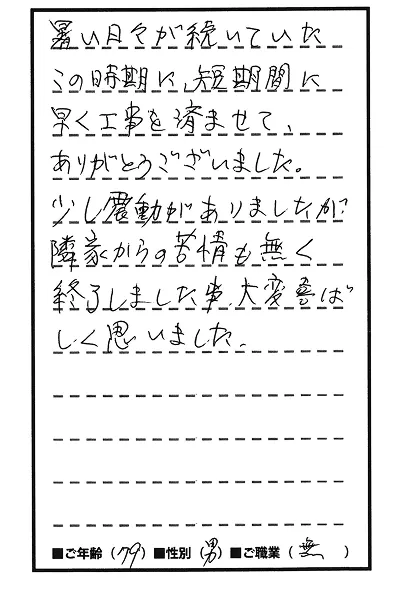 暑い日々が続いていた
この時期に、短期間に
早く工事を済ませて、
ありがとうございました。
少し震動がありましたが
隣家からの苦情も無く
終了しました事、大変喜ば
しく思いました。
■ご年齢（79）■性別（男）■ご職業（無）